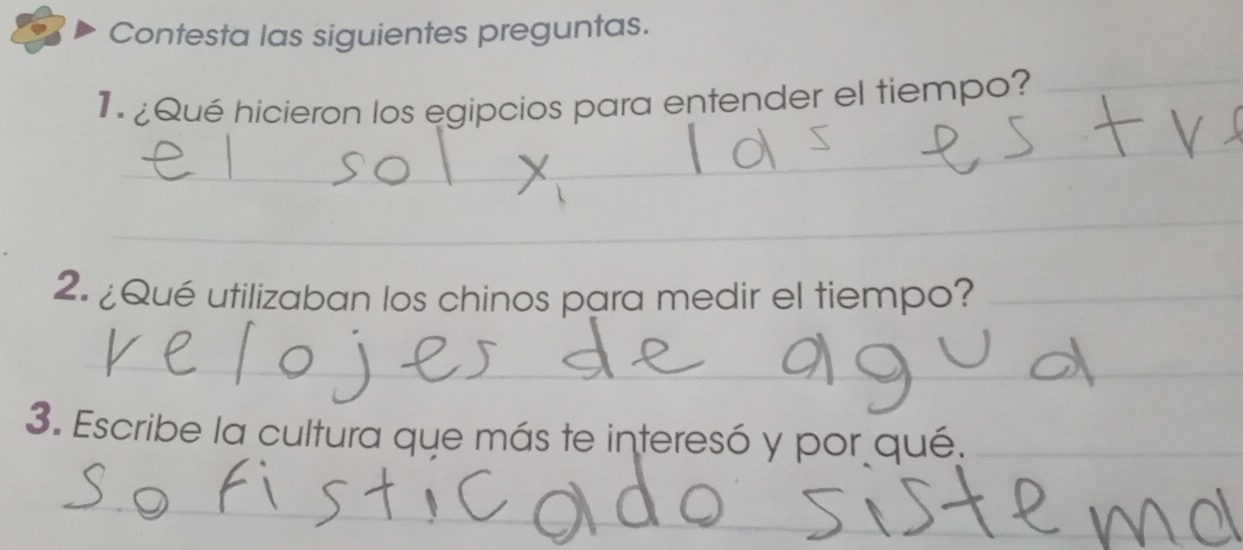 Contesta las siguientes preguntas.
1. ¿Qué hicieron los egipcios para entender el tiempo?
el sol x las estre
2. ¿Qué utilizaban los chinos para medir el tiempo?
relojes de agua
3. Escribe la cultura que más te interesó y por qué.
sofisticado sistema